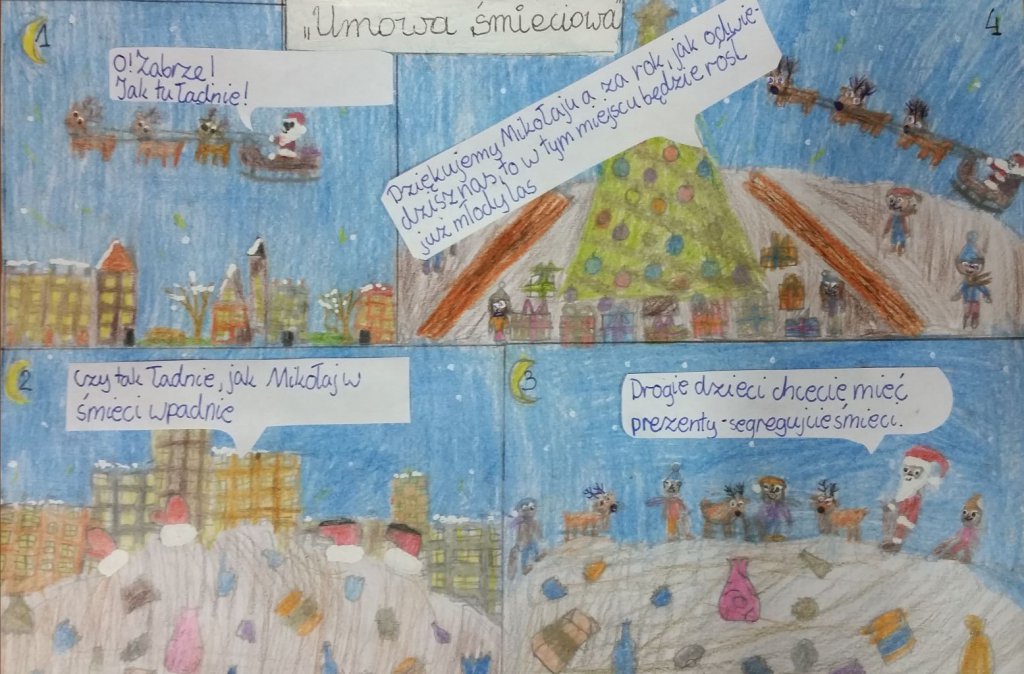 „Umowa śmieciowa”
1
O! Zabrze!
Jak tu ładnie!
2
Czy tak ładnie, jak Mikołaj w
śmieci wpadnie
3
Drogie dzieci chcecie mieć
prezenty - segregujcie śmieci.
4
Dziękujemy Mikołaju a za rok, jak odwie-
dzisz nas, to w tym miejscu będzie rósł
już młody las